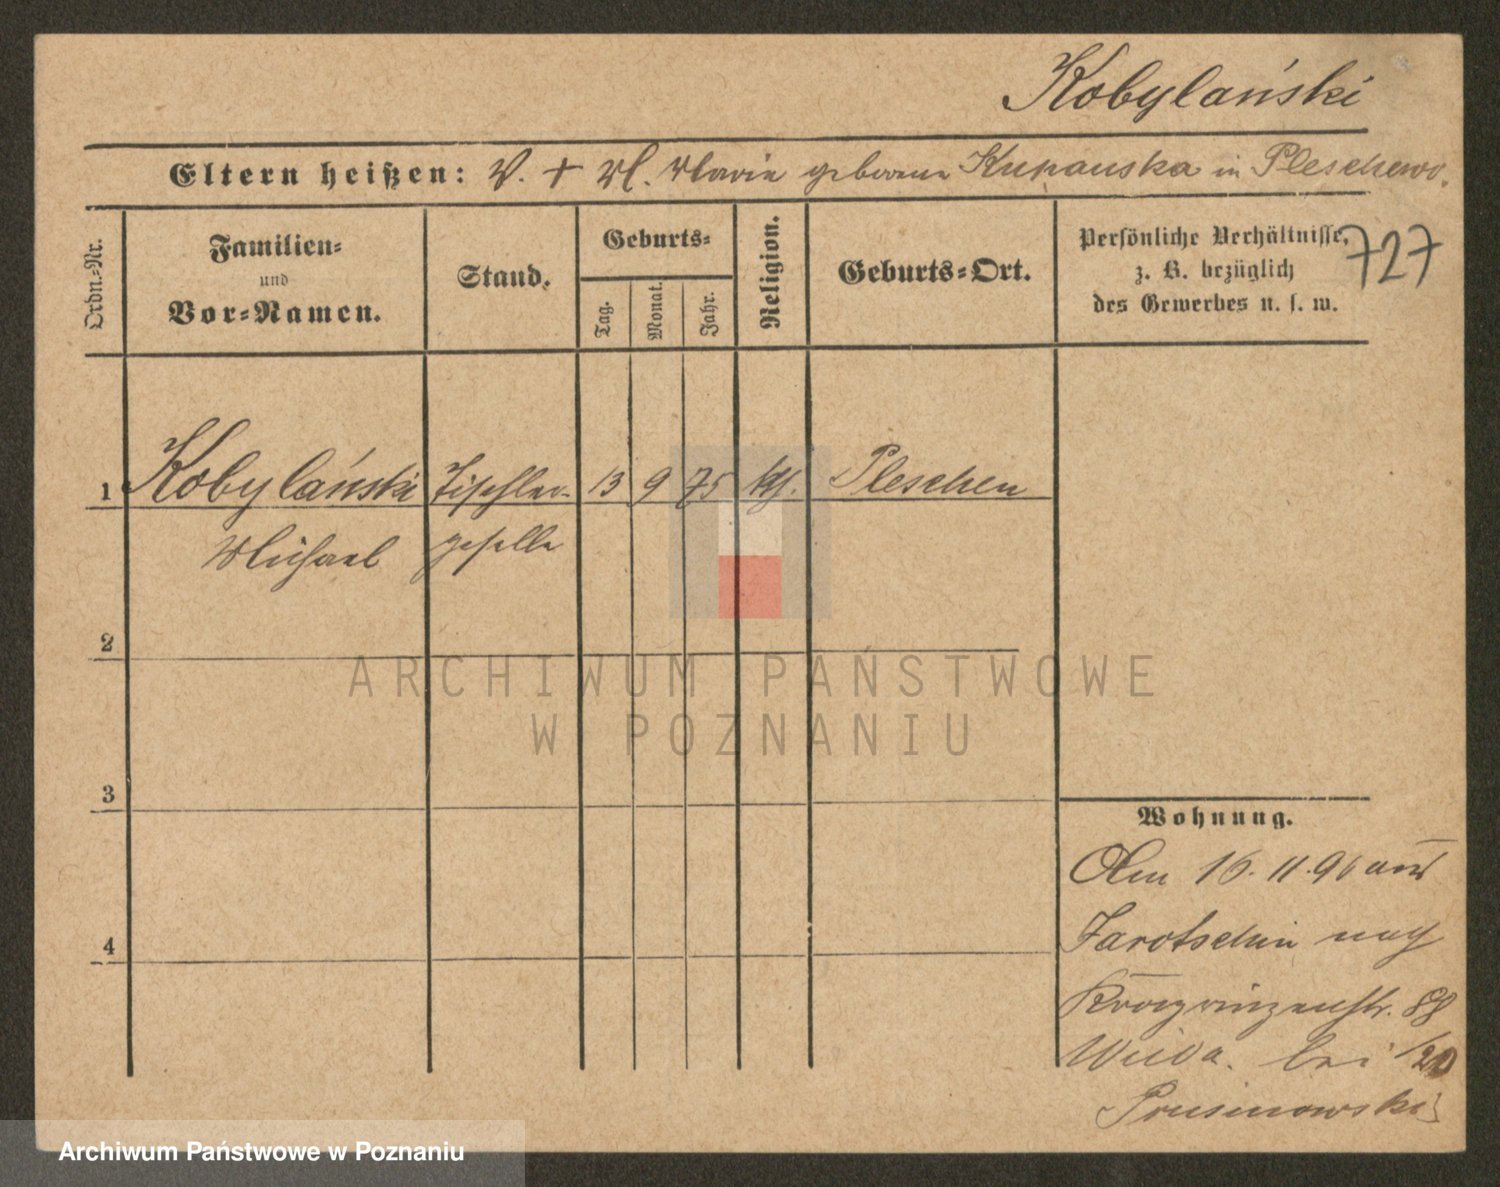 Kobylański
Eltern heißen: V. + M. Marie geborene Kupauska in Pleschewo.
Ordn.-Nr.
Familien-
und
Vor-Namen.
Stand.
Geburts-
Tag.
Monat.
Jahr.
Religion.
Geburts-Ort.
Persönliche Verhältnisse,
z. B. bezüglich
des Gewerbes u. s. w.
727
1 Kobylański Tischler- 13 9 75 kth. Pleschen
Michael geselle
2
ARCHIWUM PAŃSTWOWE
W POZNANIU
3
4
Wohnung.
Am 16. 11. 96 aus
Jarotschin nach
Kronprinzenstr. 88
Wilda. bei /20
Prusinowski
Archiwum Państwowe w Poznaniu